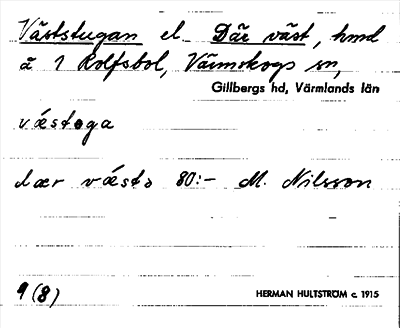 Väststugan el. Där väst, hmd
å 1 Rolfsbol, Värmskogs sn,
Gillbergs hd, Värmlands län
vǽstoga
dær vǽstə 80:- M. Nilsson
9 (8)
HERMAN HULTSTRÖM c. 1915